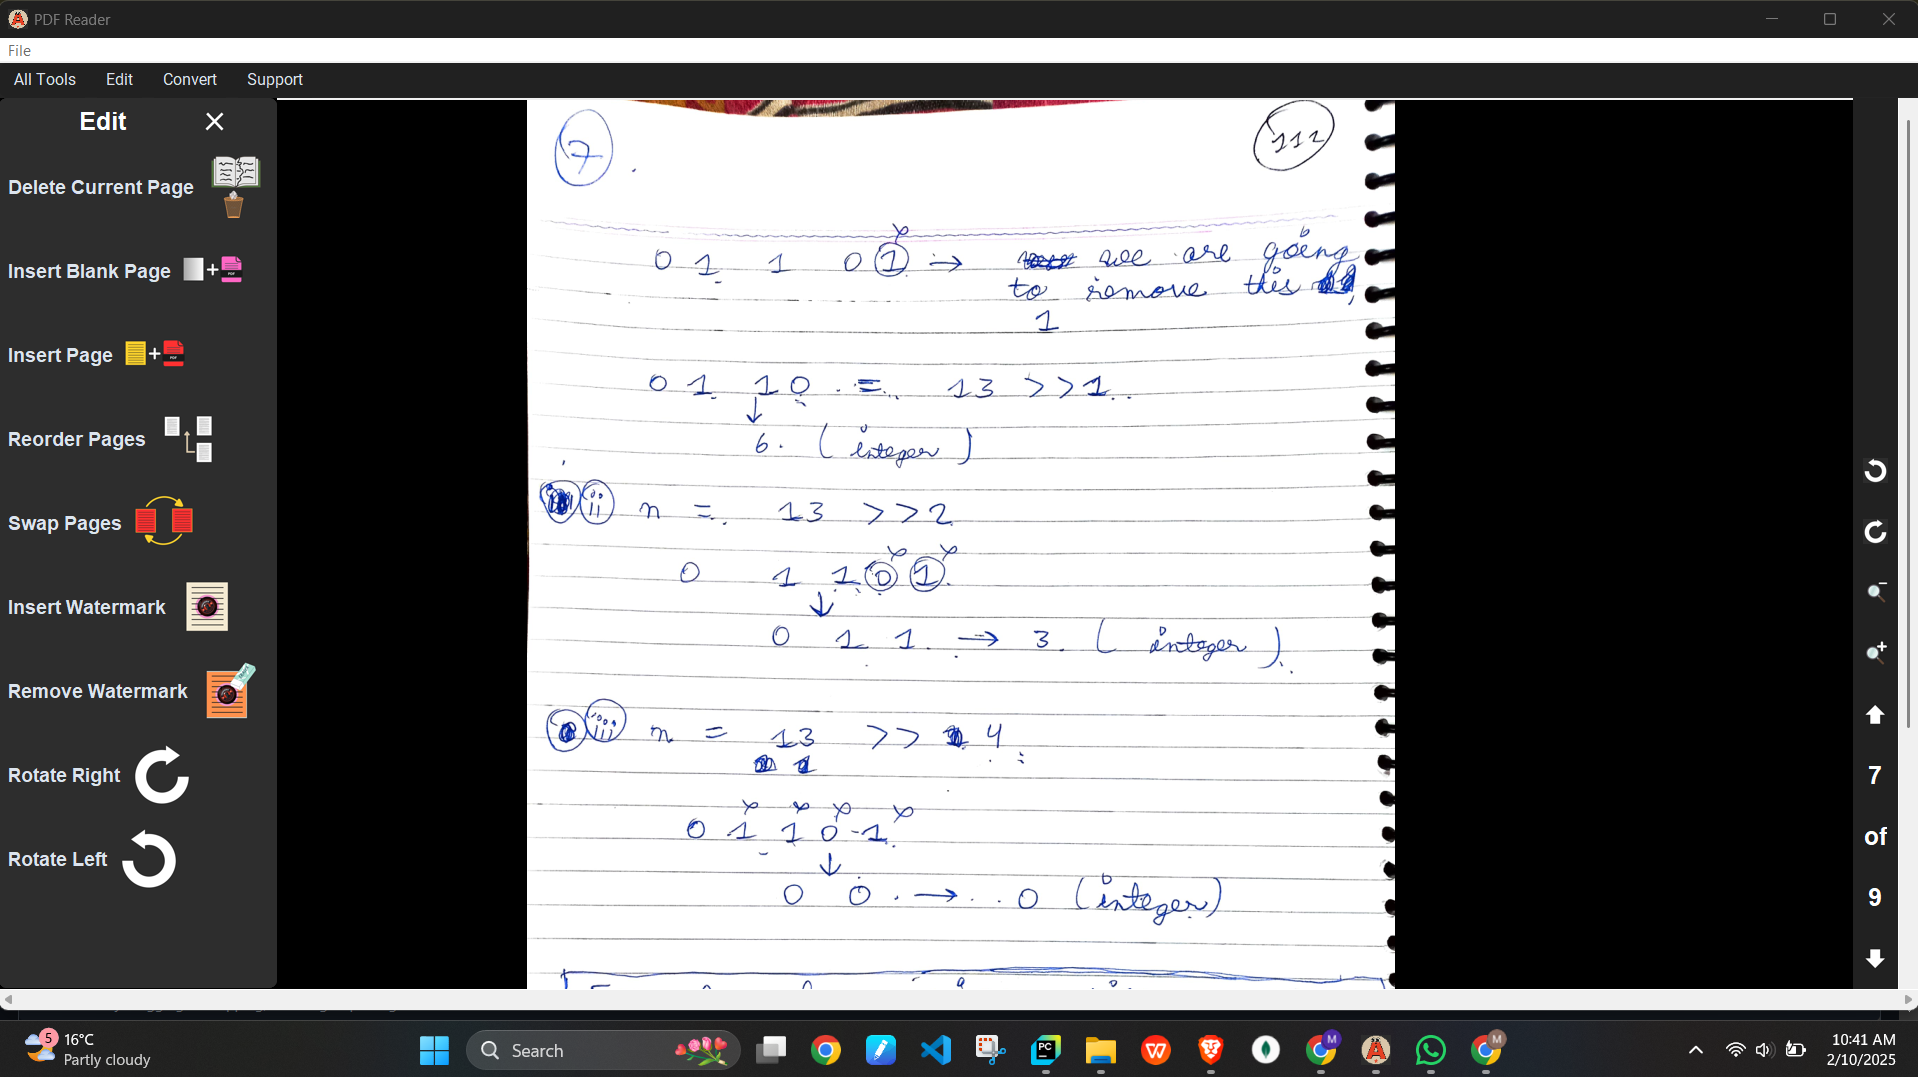 PDF Reader
File
All Tools Edit Convert Support
Edit
Delete Current Page
Insert Blank Page
Insert Page
Reorder Pages
Swap Pages
Insert Watermark
Remove Watermark
Rotate Right
Rotate Left
7
112
0 1 1 0 1 → we are going
to remove this
1
0 1 1 0 = 13 >>1
↓
6. (integer)
ii n = 13 >>2
0 1 1 0 1
↓
0 1 1 → 3. (integer).
iii n = 13 >> 4
0 1 1 0 1
↓
0 0 → 0 (integer)
7
of
9
5
16°C
Partly cloudy
Search
10:41 AM
2/10/2025